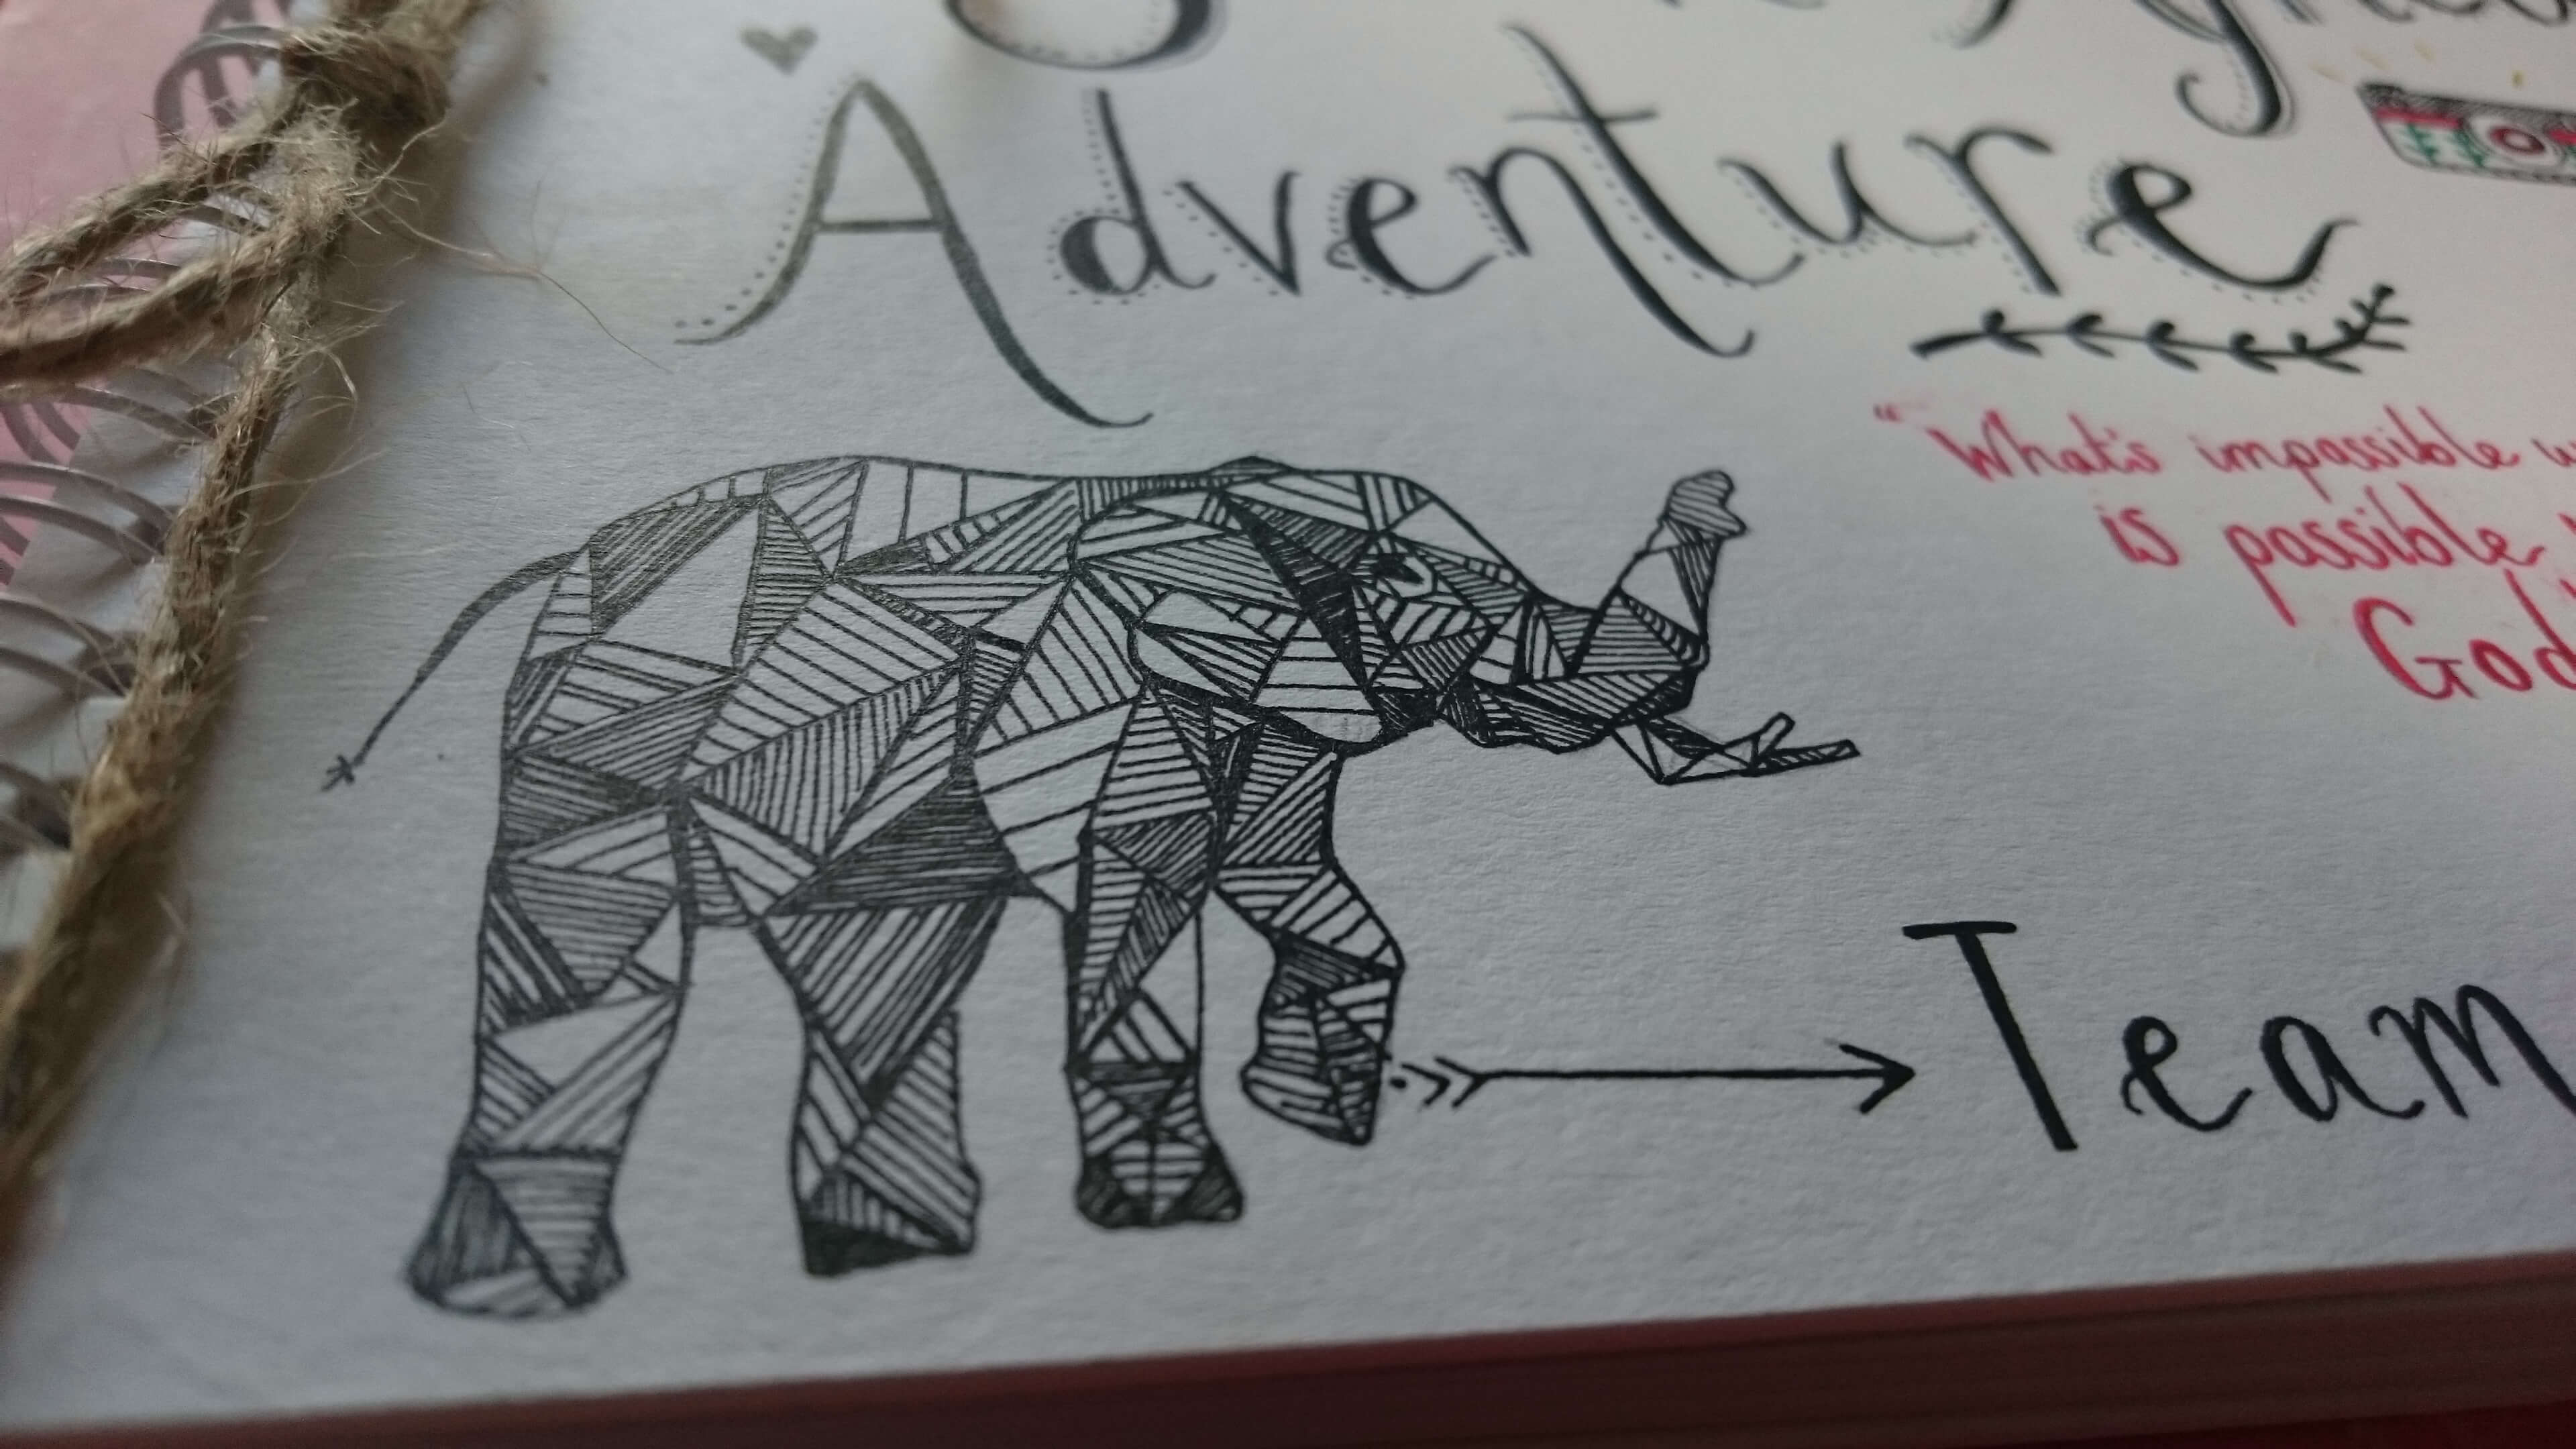 Adventure
"What's impossible
is possible
God
Team